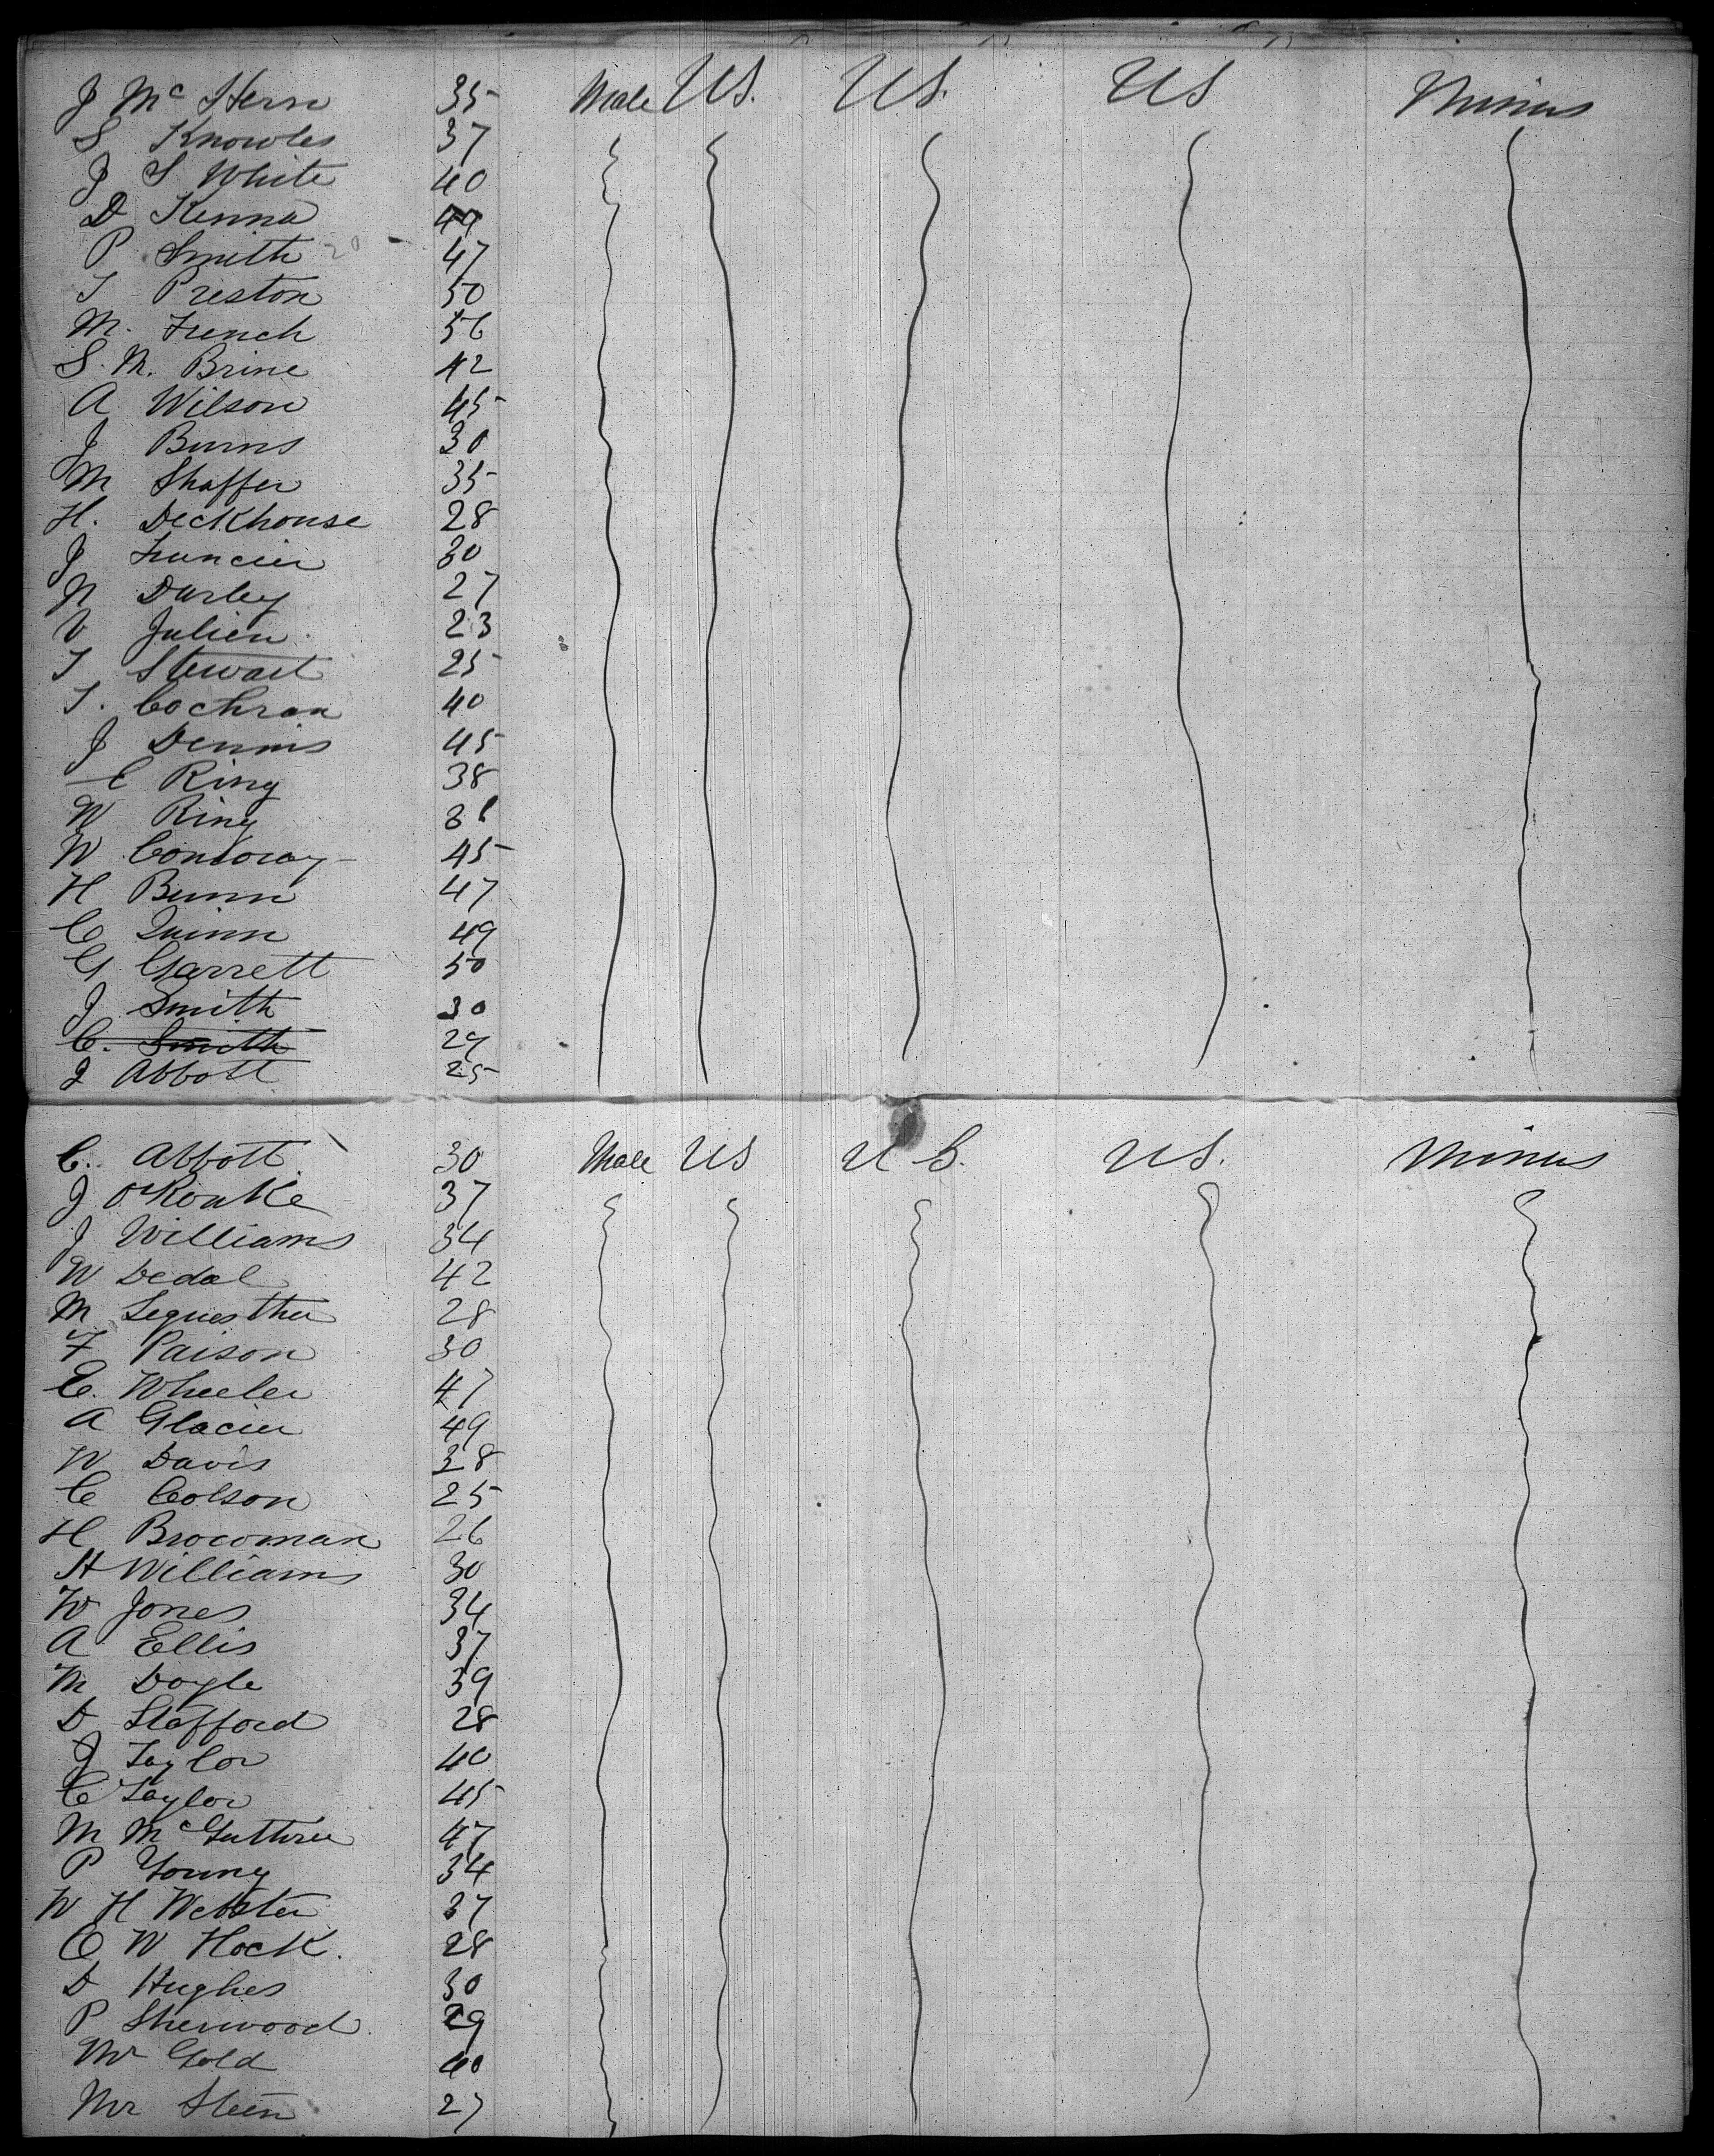 J Mc Hern 35 Male US. US. US Minus
S Knowles 37
J S White 40
D Kenna 49
P Smith 47
T Preston 50
M. French 56
S. M. Brine 42
A Wilson 45
J Burns 30
M Shaffer 35
H. Deckhouse 28
J Francier 30
N Darley 27
V Julien 23
T Stewart 25
T. Cochran 40
J Dennis 45
E Ring 38
W Ring
W Conway 45
H Bunn 47
C Quinn 49
G Garrett 50
J Smith 30
C. Smith 29
J Abbott 25
C. Abbott 30 Male US U S. US. Minus
J O'Rouke 37
J Williams 34
W Dedal 42
M 28
F Paison 30
E. Wheeler 47
A Glacier 49
W Davis 38
C Colson 25
H Brocoman 26
H Williams 30
W Jones 34
A Ellis 37
M Doyle 39
D Stafford 28
J Taylor 40
C Taylor 45
M McGuthrie 47
P Young 34
W H Webster 37
O W Hock. 28
D Hughes 30
P Sherwood 29
Mr Gold 40
Mr Steen 27